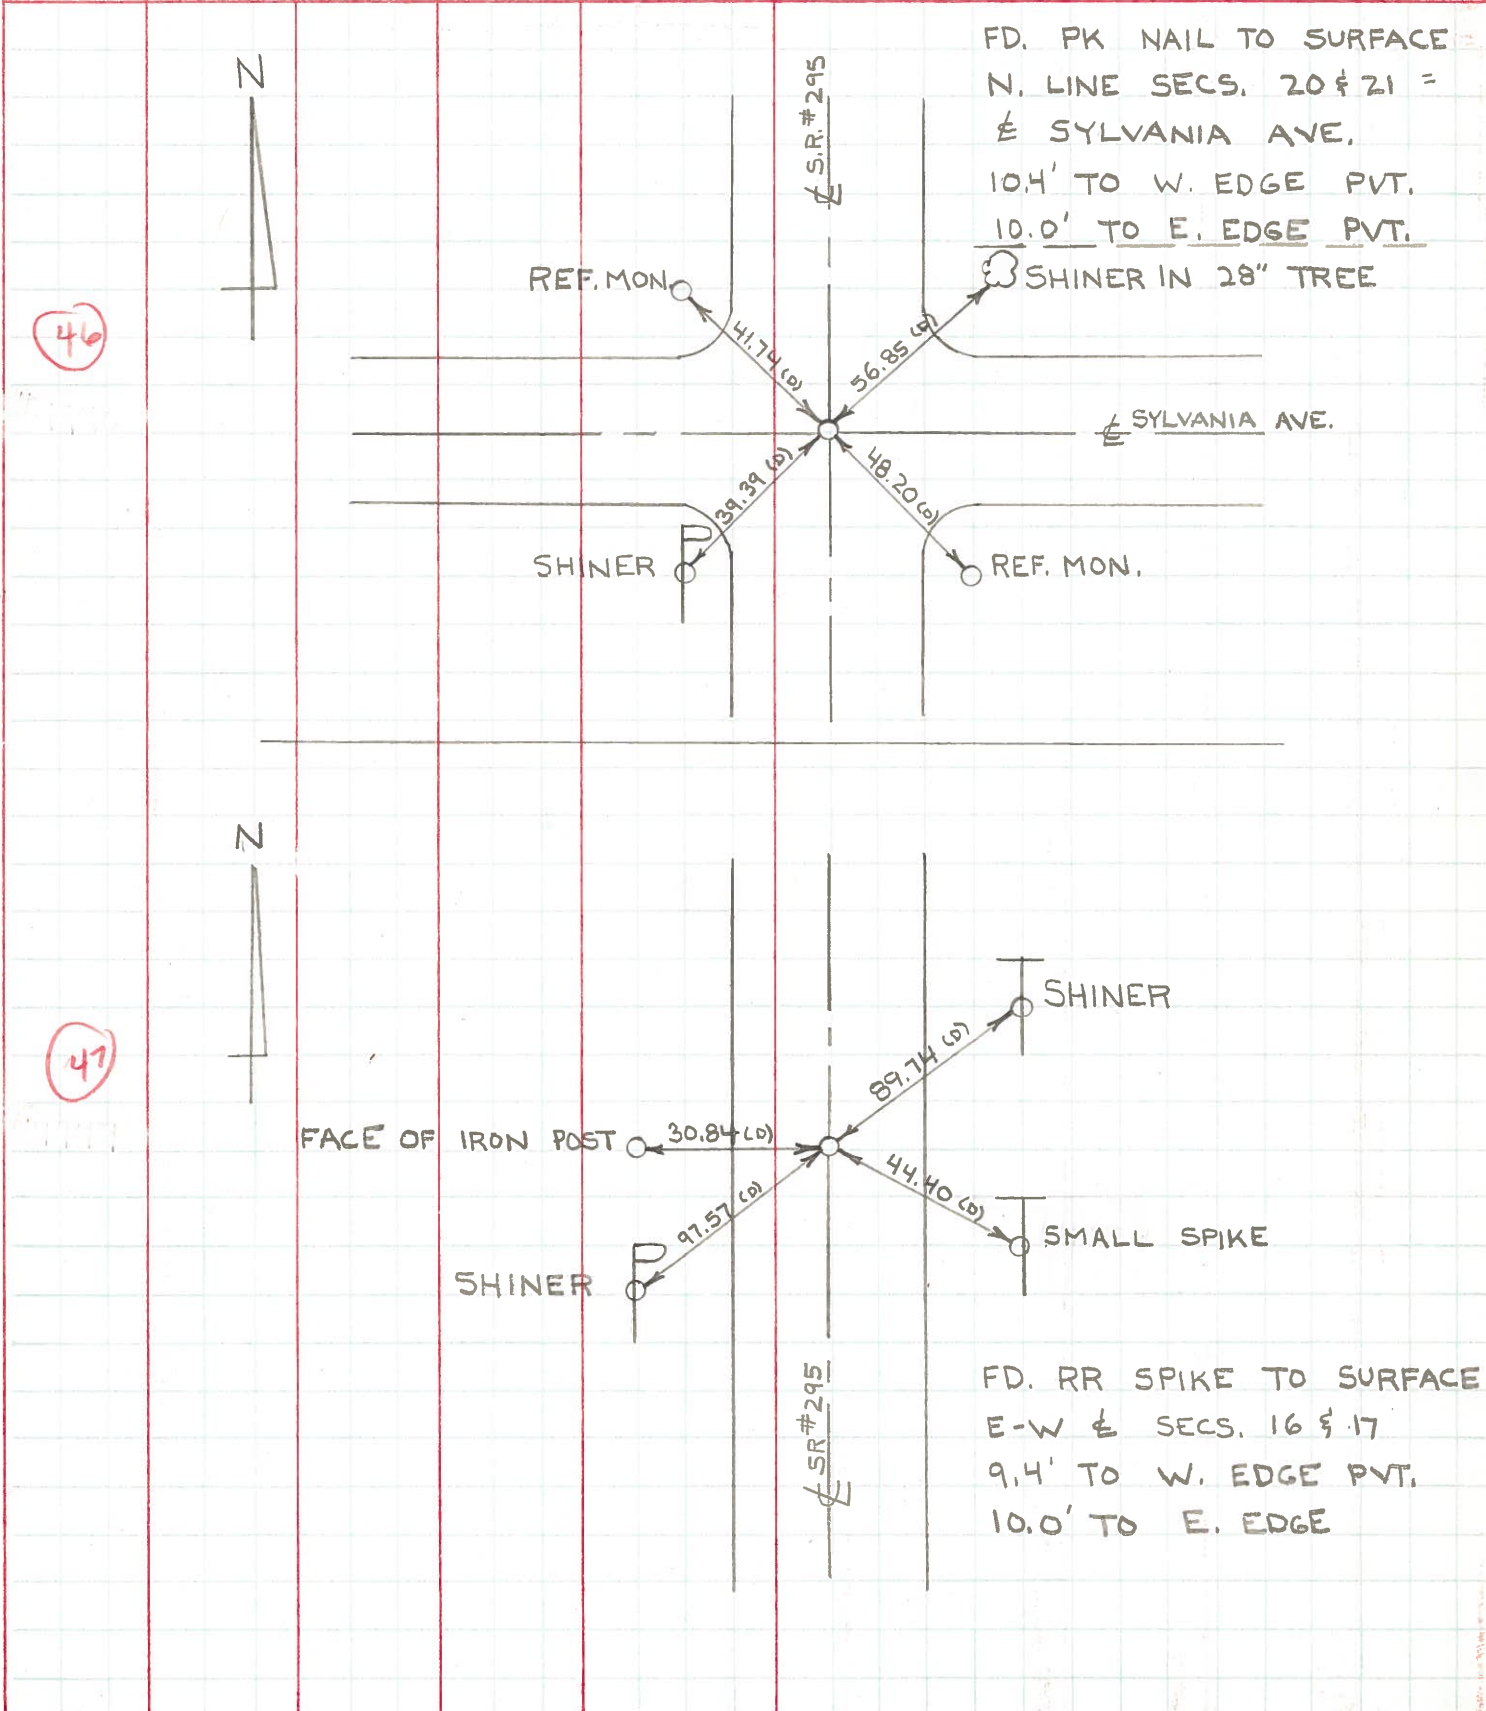 FD. PK NAIL TO SURFACE
N. LINE SECS. 20 & 21 =
℄ SYLVANIA AVE.
10.4' TO W. EDGE PVT.
10.0' TO E. EDGE PVT.
N
℄ S.R.#295
REF. MON.
SHINER IN 28" TREE
46
41.74 (D)
56.85 (D)
℄ SYLVANIA AVE.
39.39 (D)
48.20 (D)
SHINER
REF. MON.
N
SHINER
47
89.74 (D)
FACE OF IRON POST
30.84 (D)
44.40 (D)
97.57 (D)
SMALL SPIKE
SHINER
℄ SR#295
FD. RR SPIKE TO SURFACE
E-W ℄ SECS. 16 & 17
9.4' TO W. EDGE PVT.
10.0' TO E. EDGE